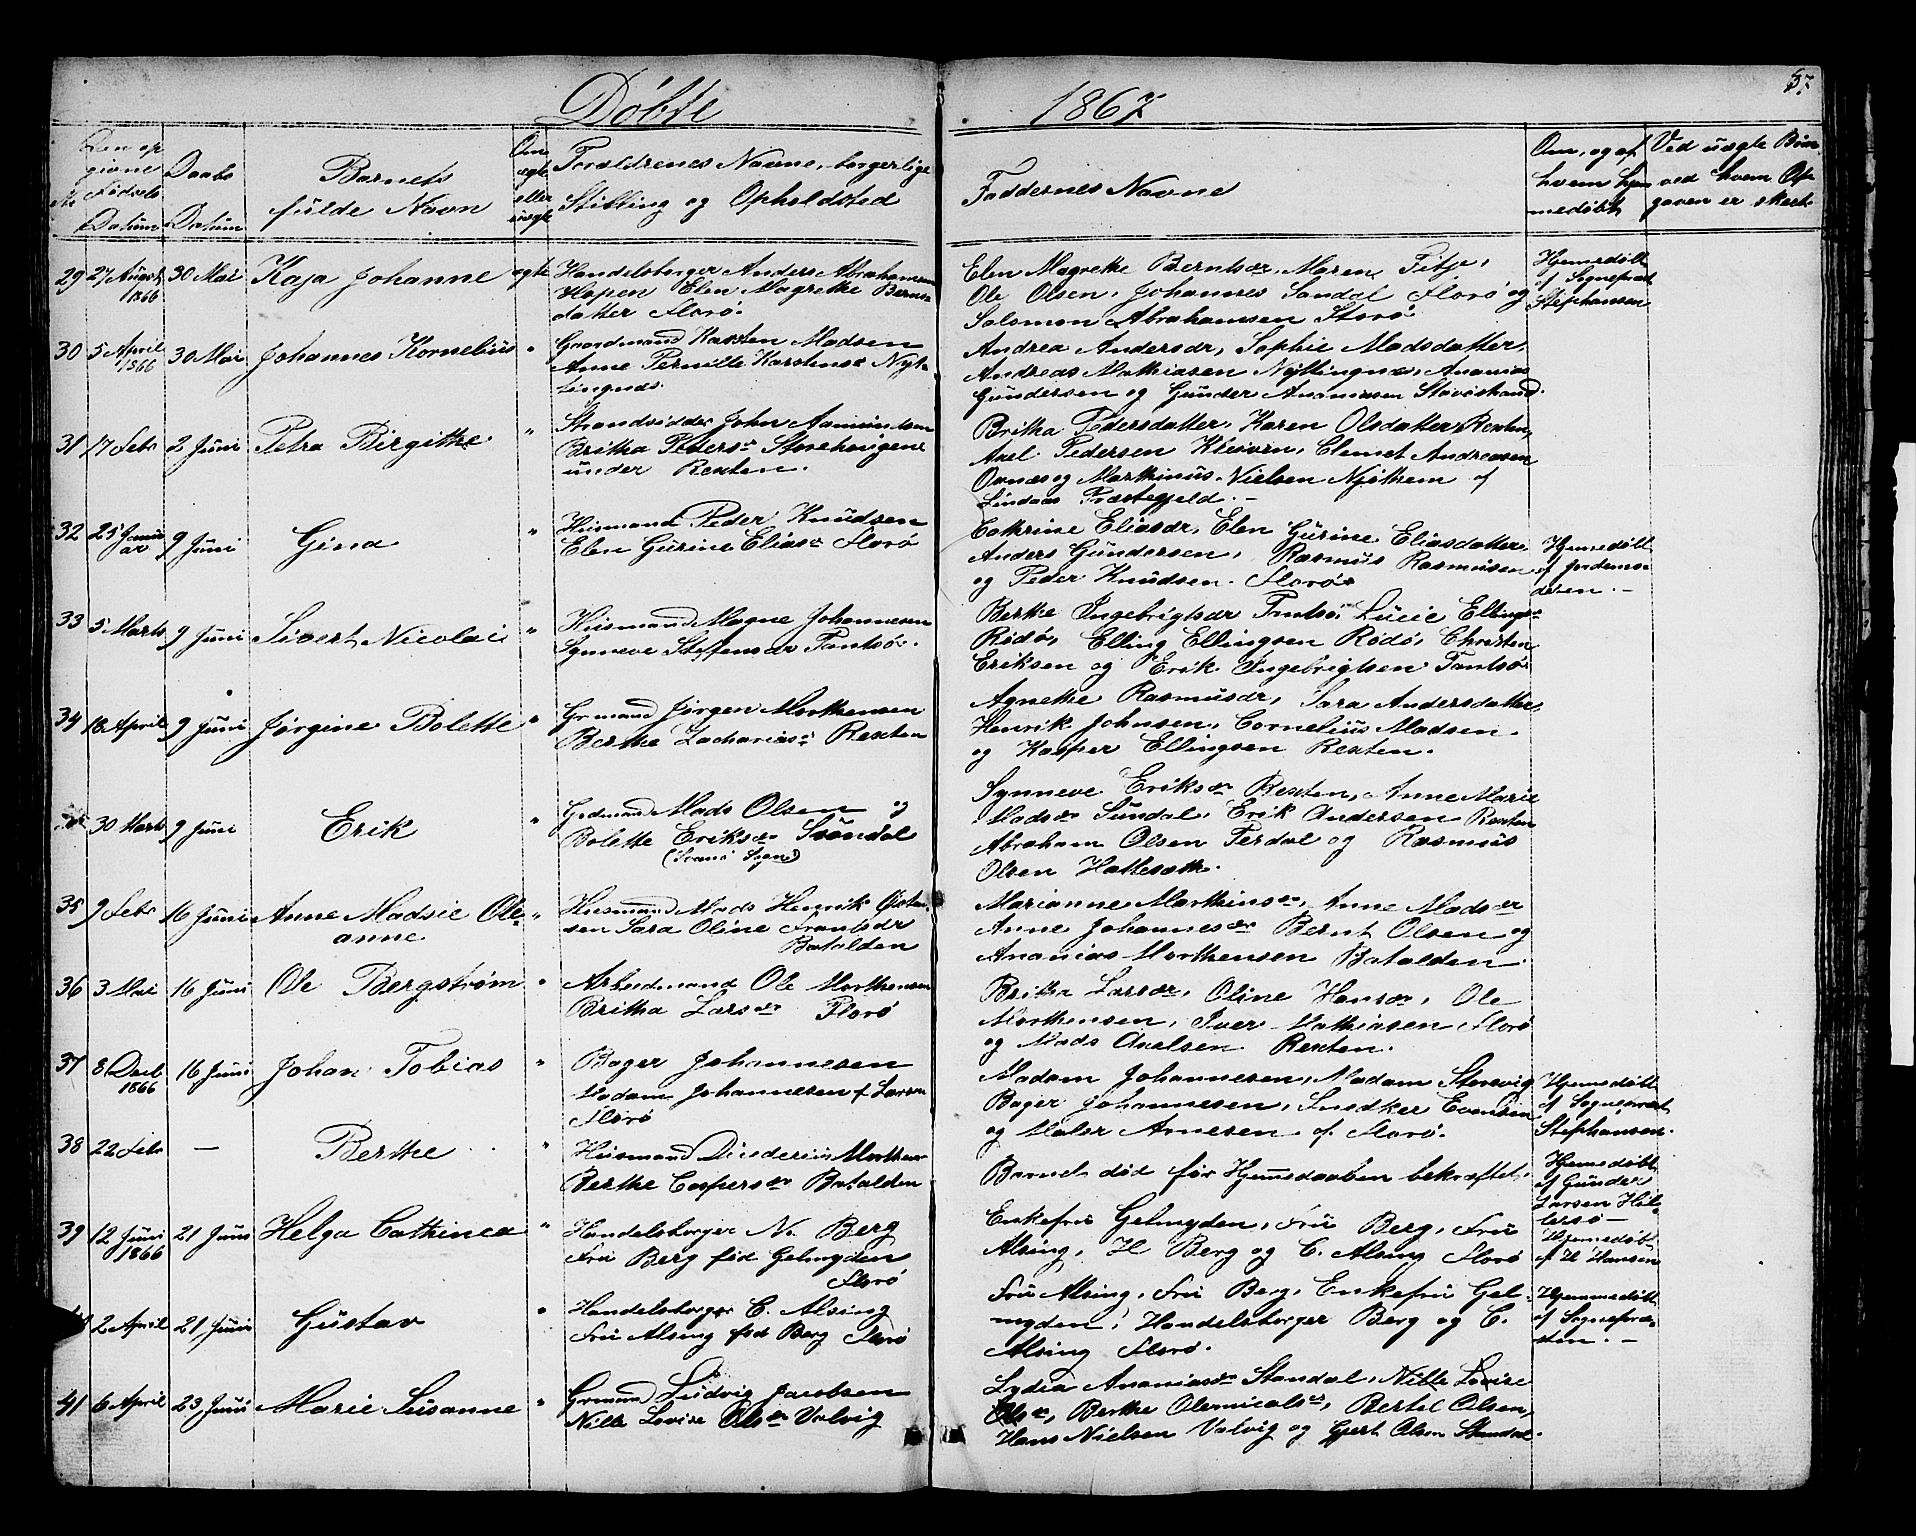 Døbte 1867
37.
Den op
givne
No Fødsels
Datum
Daabs
Datum
Barnets
fulde Navn
Om
ægte
eller
uægte
Forældrenes Navne, borgerlige
Stilling og Opholdsted
Faddernes Navne
Om, og af
hvem hjem
medøbt
Ved uægte Børn
ved hvem Op
gaven er skeet
29 27 August 30 Mai Kaja Johanne ægte Handelsborger Anders Abrahamsen
1866 Hopen Elen Magrethe Bernts
datter Florø.
Elen Magrethe Berntsdr, Maren Fitje,
Ole Olsen, Johannes Sandal Florø og
Salomon Abrahamsen Storø
Hjemedøbt
af Sognepræst
Stephansen
30 5 April 30 Mai Johannes Kornelius " Gaardmand Karsten Madsen
1866 Anne Pernille Karstensdr Nyt-
tingnæs.
Andrea Andersdr, Sophie Madsdatter,
Andreas Mathiasen Nyttingnæs, Ananias
Gundersen og Gunder Ananiasen Stavøstrand.
31 17 Febr 2 Juni Petra Birgithe " Strandsidder John Aamundsen
Britha Pedersdr Storehougene
under Rexten.
Britha Pedersdatter, Karen Olsdatter Rexten,
Axel Pedersen Kleiven, Clemet Andreasen
og Marthinus Nielsen Njøthem af
Lindaas Præstegjeld. -
32 25 Janu 9 Juni Gina " Husmand Peder Knudsen
ar Elen Gurine Eliasdr Florø
Cathrine Eliasdr, Elen Gurine Eliasdatter,
Anders Gundersen, Rasmus Rasmusen
og Peder Knudsen. Florø
Hjemedøbt
af Jordemo-
deren. -
33 5 Marts 9 Juni Sivert Nicolai " Husmand Magne Johannesen
Synneve Steffensdr Tantsø.
Berthe Ingebrigtsdr Tantsø, Lucie Ellingsdr
Rødø, Elling Ellingsen Rødø, Christen
Eriksen og Erik Ingebrigtsen Tantsø
34 18 April 9 Juni Jørgine Bolette " Grmand Jørgen Morthensen
Berthe Zachariasdr Rexten
Agnethe Rasmusdr, Sara Andersdatter,
Henrik Johnsen, Cornelius Madsen
og Kasper Ellingsen Rexten.
30 Marts 9 Juni Erik " Grdmand Mads Olsen og
Bolette Eriksdr Svøndal
Synneve Eriksdr Rexten, Anne Marie
Madsdr Sundal, Erik Andersen Rexten
Abraham Olsen Ferdal og Rasmus
Olsen Hattesæth.
35 9 Febr 16 Juni Anne Madsie Ole- " Husmand Mads Henrik Østen-
anne sen Sara Oline Frantsdr
Batalden
Marianne Marthinsdr, Anne Madsdr
Anne Johannesdr Bernt Olsen og
Ananias Morthensen Batalden.
36 3 Mai 16 Juni Ole Bergstrøm " Arbeidmand Ole Morthensen
Britha Larsdr Florø
Britha Larsdr, Oline Hansdr, Ole
Morthensen, Iver Mathiasen, Florø
og Mads Axelsen Rexten.
37 8 Decb 16 Juni Johan Tobias " Bager Johannesen
1866 Madam Johannesen f. Larsen
Florø
Madam Johannesen, Madam Storevig
Bager Johannesen, Snedker Evensen
og Maler Arnesen af Florø.
Hjemedøbt
af Sognepræst
Stephansen.
38 22 Febr — Berthe " Husmand Morthens
Berthe Caspersdr Batalden
Barnet død før Hjemedaaben bekræftet.
Hjemedøbt
af Gunder
Larsen Hil-
lersø
39 12 Juni 21 Juni Helga Cathinca " Handelsborger N. Berg
1866 Fru Berg fød Gelmyden
Florø
Enkefru Gelmyden, Fru Berg, Fru
Alsing, H Berg og C. Alsing Florø
Hjemedøbt
af H Hansen
2 April 21 Juni Gustav " Handelsborger C. Alsing
Fru Alsing fød Berg Florø
Fru Alsing, Fru Berg, Enkefru Gel-
myden, Handelsborger Berg og C.
Alsing Florø.
Hjemmedøbt
af Sognepræ-
sten. -
41 6 April 23 Juni Marie Susanne " Grmand Ludvig Jacobsen
Nille Lovise Olsdr Valvig
Lydia Ananiasdr Standal, Nille Lovise
Olsdr, Berthe Olemicalsdr, Bertel Olsen,
Hans Nielsen Valvig og Gjert Olsen Standal.